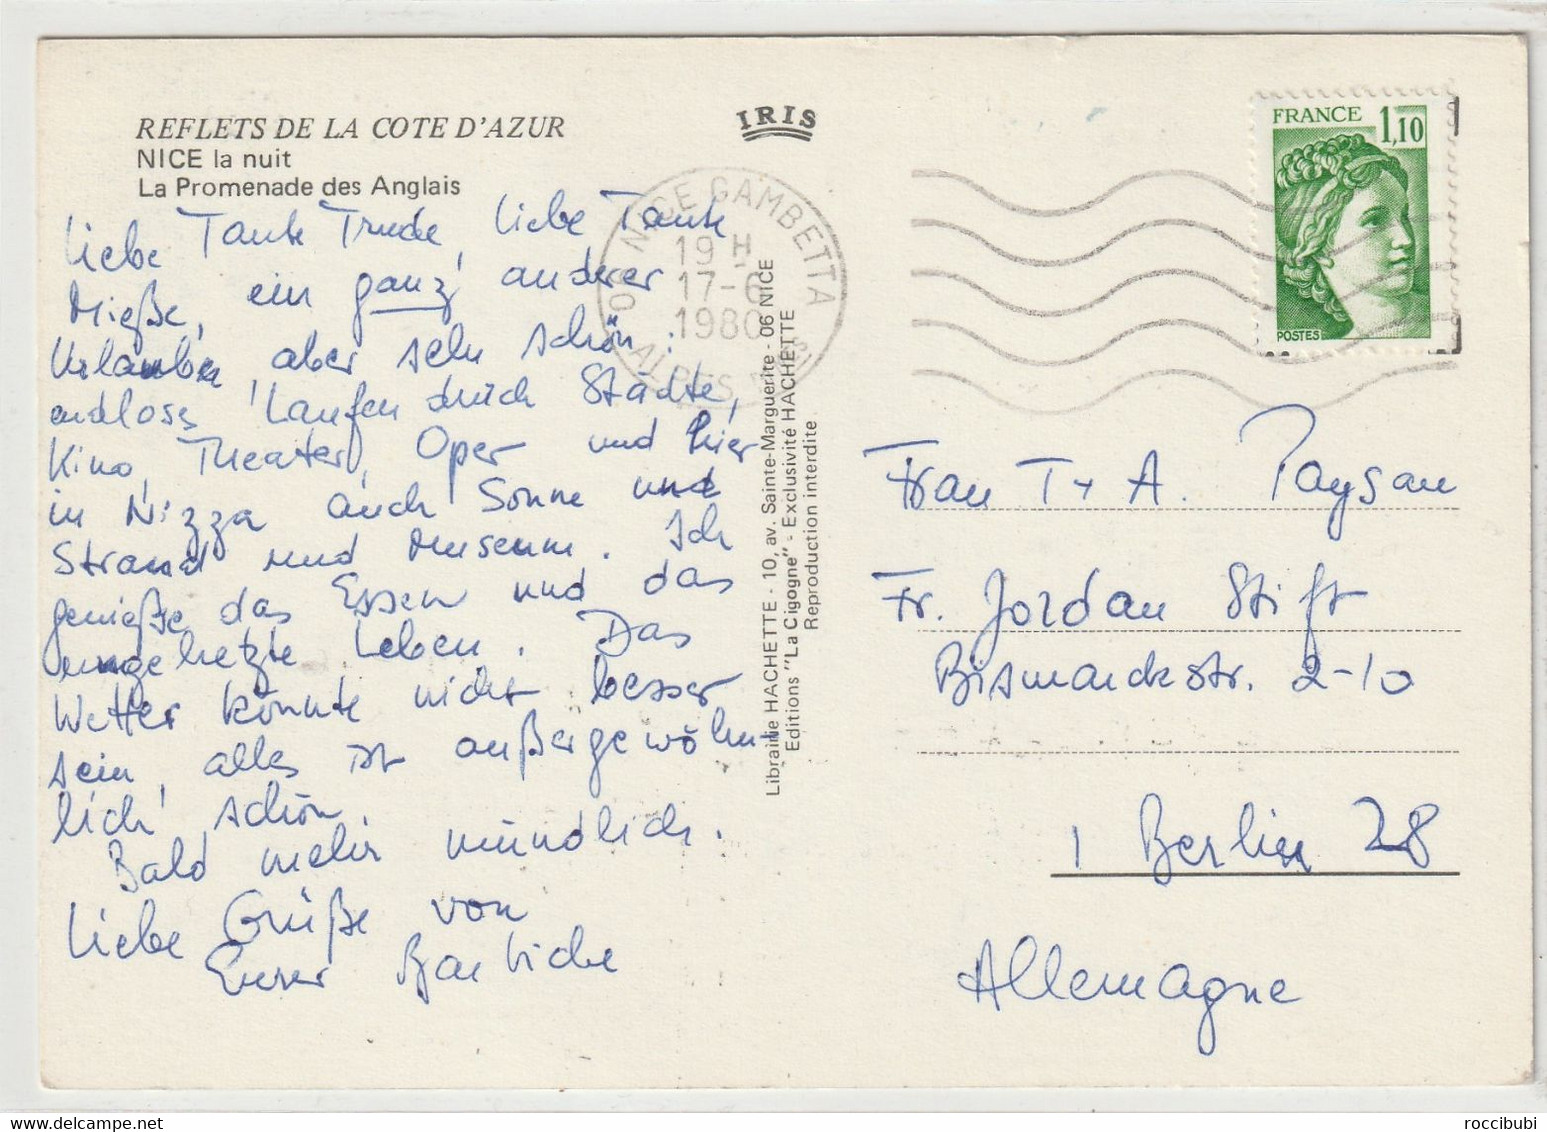 REFLETS DE LA COTE D'AZUR
NICE la nuit
La Promenade des Anglais
IRIS
Liebe Tante Trude, liebe Tante
Mieße, ein ganz anderer
Urlaub, aber sehr schön:
endloses Laufen durch Städte,
Kino, Theater, Oper und hier
in Nizza auch Sonne und
Strand und Museum. Ich
genieße das Essen und das
ungehetzte Leben. Das
Wetter könnte nicht besser
sein, alles ist außergewöhn-
lich schön.
Bald mehr mündlich.
Liebe Grüße von
Eurer
06 NICE GAMBETTA
19 H
17-6
1980
ALPES
Librairie HACHETTE - 10, av. Sainte-Marguerite - 06 NICE
Editions "La Cigogne" - Exclusivité HACHETTE
Reproduction interdite
FRANCE 1,10
POSTES
Frau T + A. Paysan
Fr. Jordan Stift
Bismarckstr. 2-10
1 Berlin 28
Allemagne
roccibubi